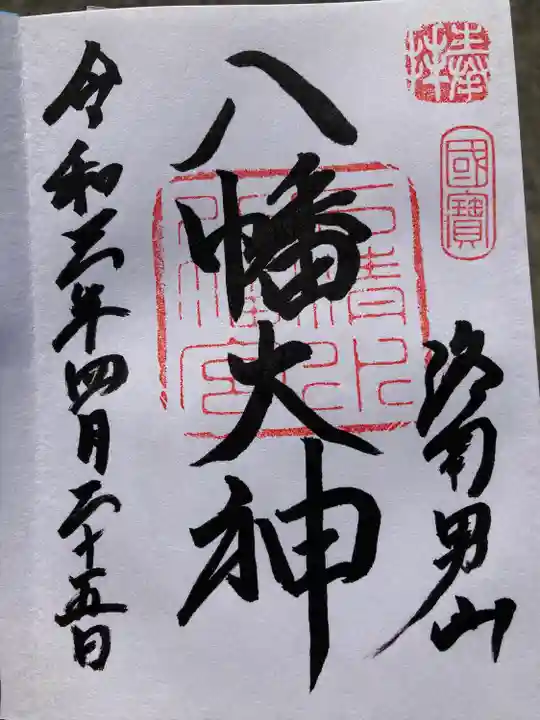 奉拝
國寶
洛南男山
八幡大神
石清水八幡宮
令和三年四月二十五日